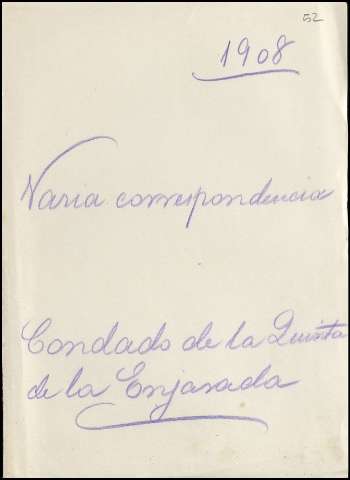 52
1908
Varia correspondencia
Condado de la Quinta
de la Enjarada